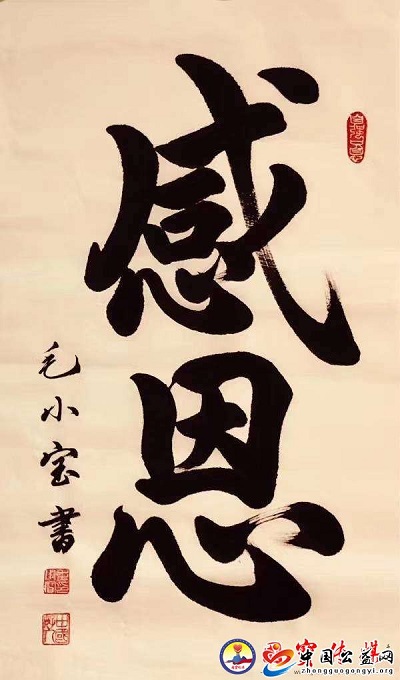 感恩
毛小宝書
自强不息
中国公益网
www.zhongguogongyi.org